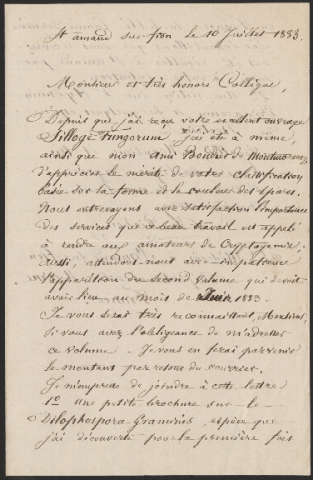 St amand sur fion le 10 Juillet 1883.
Monsieur et très honoré Collègue,
Depuis que j'ai reçu votre excellent ouvrage
Silloge fungorum j'ai été à même,
ainsi que mon ami Boudier de Montmorency
d'apprécier le mérite de votre classification
basée sur la forme et la couleur des spores.
Nous entrevoyons avec satisfaction l'importance
des services que ce beau travail est appelé
à rendre aux amateurs de Cryptogamie.
Aussi, attendons-nous avec impatience
l'apparition du second volume qui devait
avoir lieu au mois de Juin 1883.
Je vous serai très reconnaissant, Monsieur,
si vous avez l'obligeance de m'adresser
ce volume. Je vous en ferai parvenir
le montant par retour du courrier.
Je m'empresse de joindre à cette lettre
1º une petite brochure sur le
Dilophospora Graminis, espèce que
j'ai découverte pour la première fois